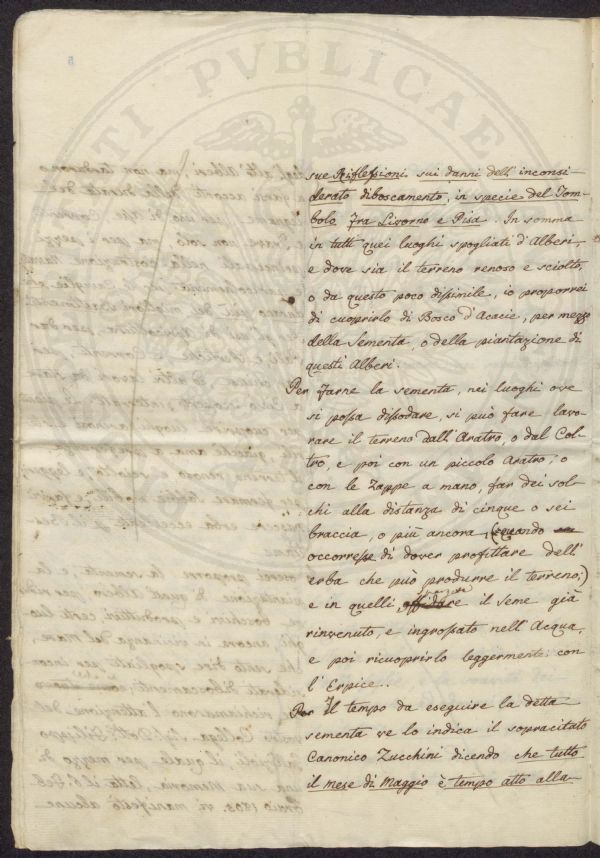 PVBLICAE
sue Riflessioni sui danni dell' inconsi-
derato diboscamento, in specie del Tom-
bolo fra Livorno e Pisa. In somma
in tutti quei luoghi spogliati d'Alberi,
e dove sia il terreno renoso e sciolto,
o da questo poco dissimile, io proporrei
di cuoprirlo di Bosco d'Acacie, per mezzo
della Sementa, o della piantazione di
questi Alberi.
Per farne la sementa, nei luoghi ove
si possa dissodare, si può fare lavo-
rare il terreno dall'Aratro, o dal Col-
tro, e poi con un piccolo Aratro; o
con le Zappe a mano, far dei sol-
chi alla distanza di cinque o sei
braccia, o più ancora, (quando
occorresse di dover profittare dell'
erba che può produrre il terreno;)
e in quelli il seme già
rinvenuto, e ingrossato nell'Acqua,
e poi ricuoprirlo leggermente con
l'Erpice.
Il tempo da eseguire la detta
sementa ve lo indica il sopracitato
Canonico Zucchini dicendo che tutto
il mese di Maggio è tempo atto alla